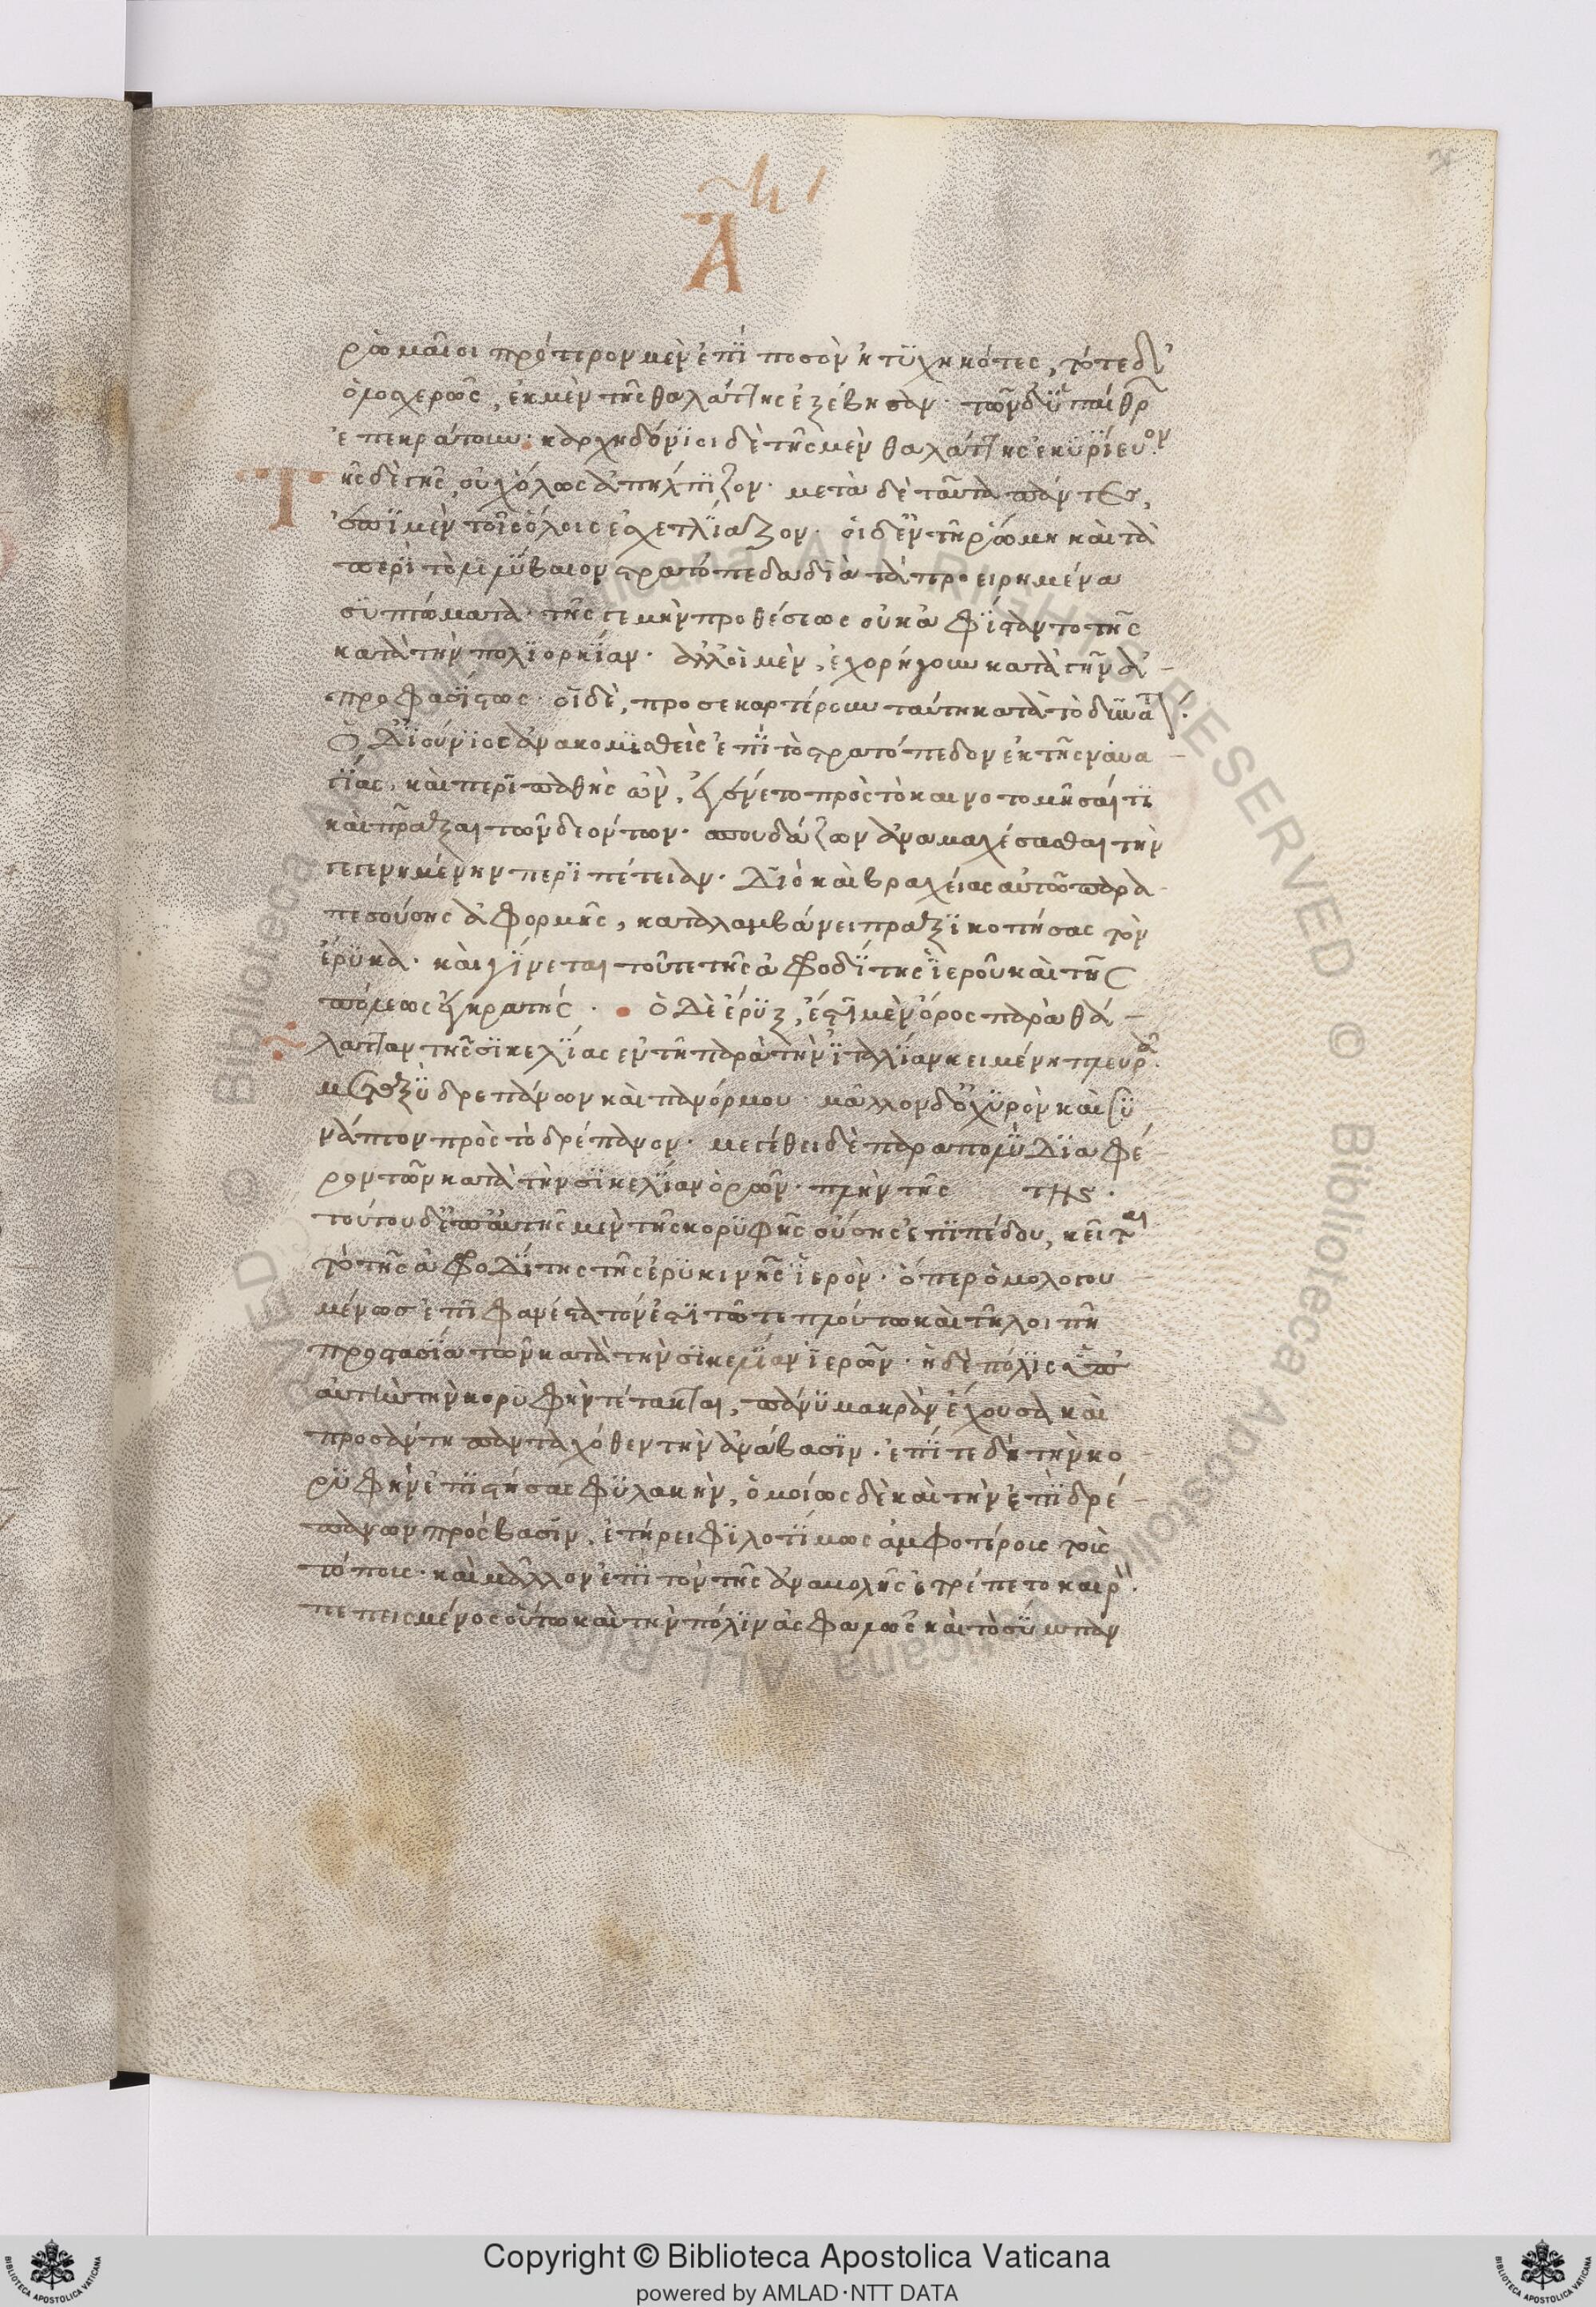 Α
ῥωμαῖοι πρότερον μὲν ἐπὶ ποσὸν ἠτυχηκότες, τότε δ'
ὁλοσχερῶς, ἐκ μὲν τῆς θαλάττης ἐξέβησαν· τῶν δ' ὑπαίθρ
ἐπεκράτουν· καρχηδόνιοι δὲ τῆς μὲν θαλάττης ἐκυρίευον
τῆς δὲ γῆς, οὐχ ὅλως ἀπήλπιζον· μετὰ δὲ ταῦτα πάντες,
ἐπὶ μὲν τοῖς ὅλοις ἐσχετλίαζον· οἱ δ' ἐν τῇ ῥώμῃ καὶ τὰ
περὶ τὸ λιλύβαιον στρατόπεδα διὰ τὰ προειρημένα
συμπτώματα· τῆς γε μὴν προθέσεως οὐκ ἀφίσταντο τῆς
κατὰ τὴν πολιορκίαν· ἀλλ' οἱ μὲν, ἐχορήγουν κατὰ γῆν ἀ
προφασίστως· οἱ δὲ, προσεκαρτέρουν ταύτῃ κατὰ τὸ δυνατόν.
Ὁ δ' ἰούνιος ἀνακομισθεὶς ἐπὶ τὸ στρατόπεδον ἐκ τῆς ναυα
γίας, καὶ περιπαθὴς ὢν, ἐγένετο πρὸς τὸ καινοτομῆσαί τι
καὶ πρᾶξαι τῶν δεόντων· σπουδάζων ἀναμαχέσασθαι τὴν
γεγενημένην περιπέτειαν· Διὸ καὶ βραχείας αὐτῷ παρα
πεσούσης ἀφορμῆς, καταλαμβάνει πραξικοπήσας τὸν
ἔρυκα· καὶ γίνεται τοῦ τε τῆς ἀφροδίτης ἱεροῦ καὶ τῆς
πόλεως ἐγκρατής· ὁ Δὲ ἔρυξ, ἔστι μὲν ὄρος παρὰ θά
λατταν τῆς σικελίας ἐν τῇ παρὰ τὴν ἰταλίαν κειμένῃ πλευρᾷ.
μεταξὺ δρεπάνων καὶ πανόρμου· μᾶλλον δ' ὀχυρὸν καὶ συ
νάπτον πρὸς τὸ δρέπανον· μεγέθει δὲ παραπολὺ Διαφέ
ρον τῶν κατὰ τὴν σικελίαν ὀρῶν· πλὴν τῆς τῆς.
τούτου δ' ἐπ' αὐτῆς μὲν τῆς κορυφῆς οὔσης ἐπιπέδου, κεῖται
τὸ τῆς ἀφροΔίτης τῆς ἐρυκινῆς ἱερόν· ὅπερ ὁμολογου
μένως ἐπιφανέστατόν ἐστι τῷ τε πλούτῳ καὶ τῇ λοιπῇ
προστασίᾳ τῶν κατὰ τὴν σικελίαν ἱερῶν· ἡ δὲ πόλις ὑπ'
αὐτὴν τὴν κορυφὴν τέτακται, πάνυ μακρὰν ἔχουσα καὶ
προσάντη πανταχόθεν τὴν ἀνάβασιν· ἐπί τε δὴ τὴν κο
ρυφὴν ἐπιστήσας φυλακήν, ὁμοίως δὲ καὶ τὴν ἐπὶ δρε
πάνων πρόσβασιν, ἐτήρει φιλοτίμως ἀμφοτέροις τοῖς
τόποις· καὶ μᾶλλον ἐπὶ τὸν τῆς ἀναβολῆς ἐτρέπετο καιρ.
πεπεισμένος οὕτω καὶ τὴν πόλιν ἀσφαλῶς καὶ τὸ σύμπαν
Copyright © Biblioteca Apostolica Vaticana
powered by AMLAD·NTT DATA